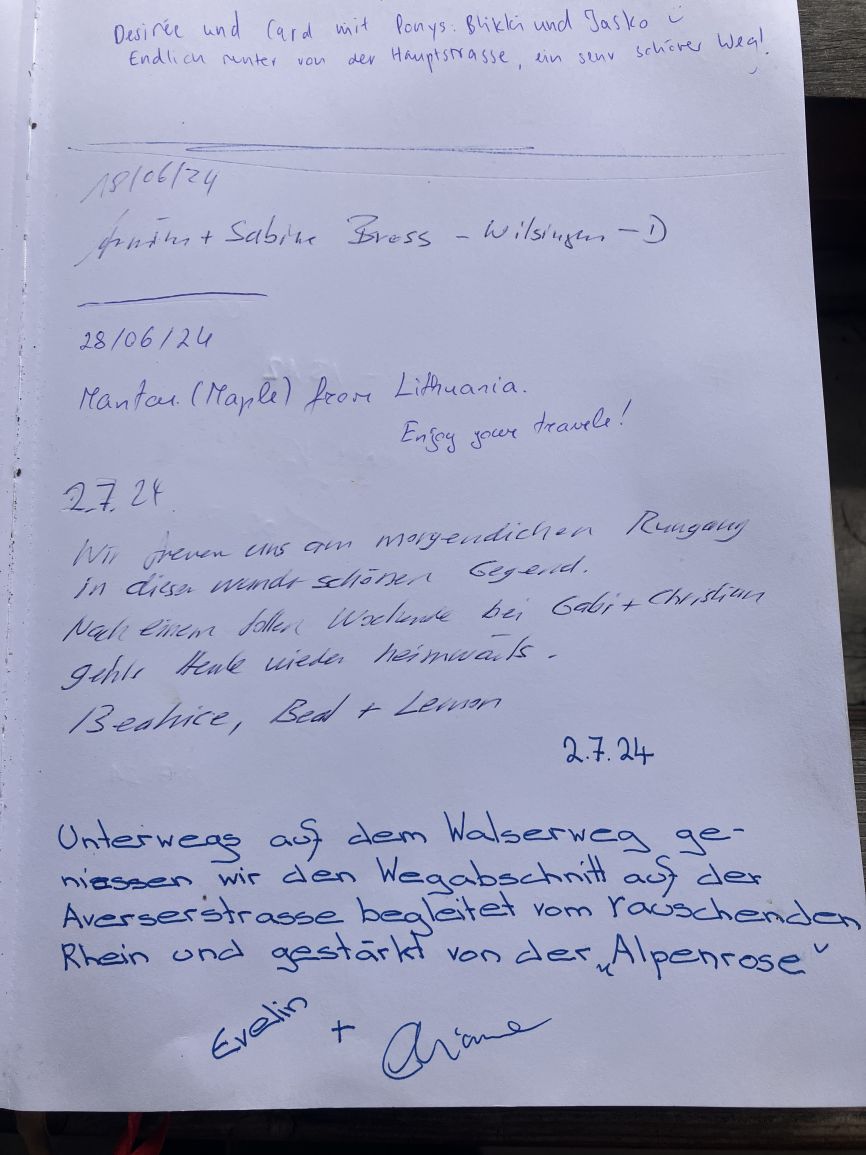 Desirée und Card mit Ponys: Blikki und Jasko
Endlich runter von der Hauptstrasse, ein sehr schöner Weg!
18/06/24
+ Sabine Bross - Wilsingen - D
28/06/24
(Maple) from Lithuania.
Enjoy your travels!
2.7.24
Wir freuen uns am morgendlichen Rungang
in dieser wunderschönen Gegend.
Nach einem tollen Wochende bei Gabi + Christian
gehts Heute wieder heimwärts.
Beatrice, Beat + Lemon
2.7.24
Unterwegs auf dem Walserweg ge-
niessen wir den Wegabschnitt auf der
Averserstrasse begleitet vom rauschenden
Rhein und gestärkt von der „Alpenrose“
Evelin + Ariane